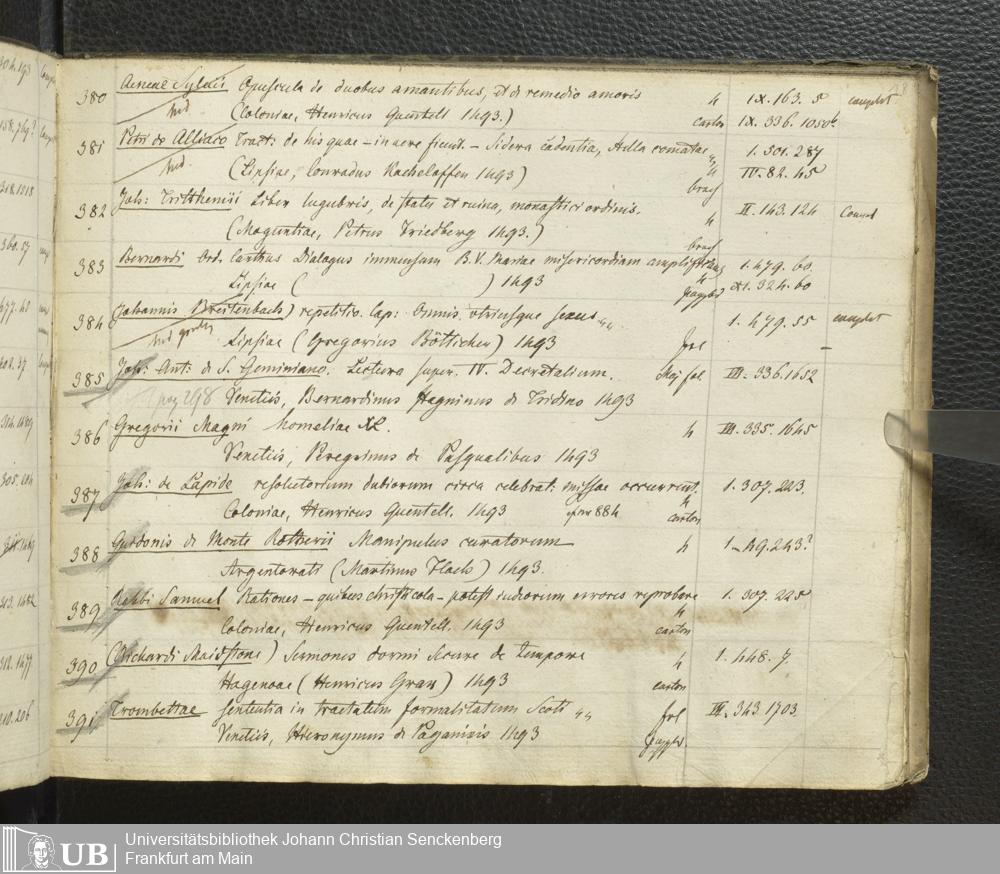 380 Aeneae Sylvii Opuscula de duobus amantibus, et de remedio amoris 4 IX. 163. 5 complet
(Coloniae, Henricus Quentell 1493.) carton IX. 336. 1050
381 Petri de Alliaco Tract: de his quae in aere fiunt - Sidera cadentia, stella comatae 1. 301. 287
(Lipsiae, Conradus Kacheloffen 1493) 4 IV. 82. 45
broch
382 Joh: Trithemii Liber lugubris, de statu et ruina, monastici ordinis. 4 II. 143. 124
(Moguntiae, Petrus Friedberg 1493.) broch
383 Bernardi Ord. Carthus Dialogus immensam B. V. Mariae misericordiam 1. 479. 60.
Lipsiae ( ) 1493 4 XI. 324. 60
384 Johannis Breitenbach) repetitio. Cap: Omnis utriusque sexus 1. 479. 55 complet
Lipsiae (Gregorius Bötticher) 1493 fol
385 Joh: Ant: de S. Geminiano. Lectura super. IV. Decretalium. Maj fol. III. 336. 1652
pag 298 Venetiis, Bernardinus de Tridino 1493
386 Gregorii Magni homeliae XL. 4 III. 335. 1645
Venetiis, Peregrinus de Pasqualibus 1493
387 Joh: de Lapide resolutorium dubiorum circa celebrat: missae occurrent. 1. 307. 223.
Coloniae, Henricus Quentell. 1493 4 carton
388 Guidonis de Monte Rotherii Manipulus curatorum 4 1. 49. 243?
Argentorati (Martinus Flach) 1493.
389 Rabbi Samuel Rationes - quibus christicola - potest iudiorum errores reprobare 1. 307. 225
Coloniae, Henricus Quentell. 1493 4 carton
390 (Richardi Maidstone) Sermones dormi secure de tempore 4 1. 448. 7.
Hagenoae (Henricus Gran) 1493 carton
391 Trombettae sententia in tractatum formalitatum Scoti fol III. 343. 1703.
Venetiis, Hieronymus de Paganinis 1493
UB
Universitätsbibliothek Johann Christian Senckenberg
Frankfurt am Main